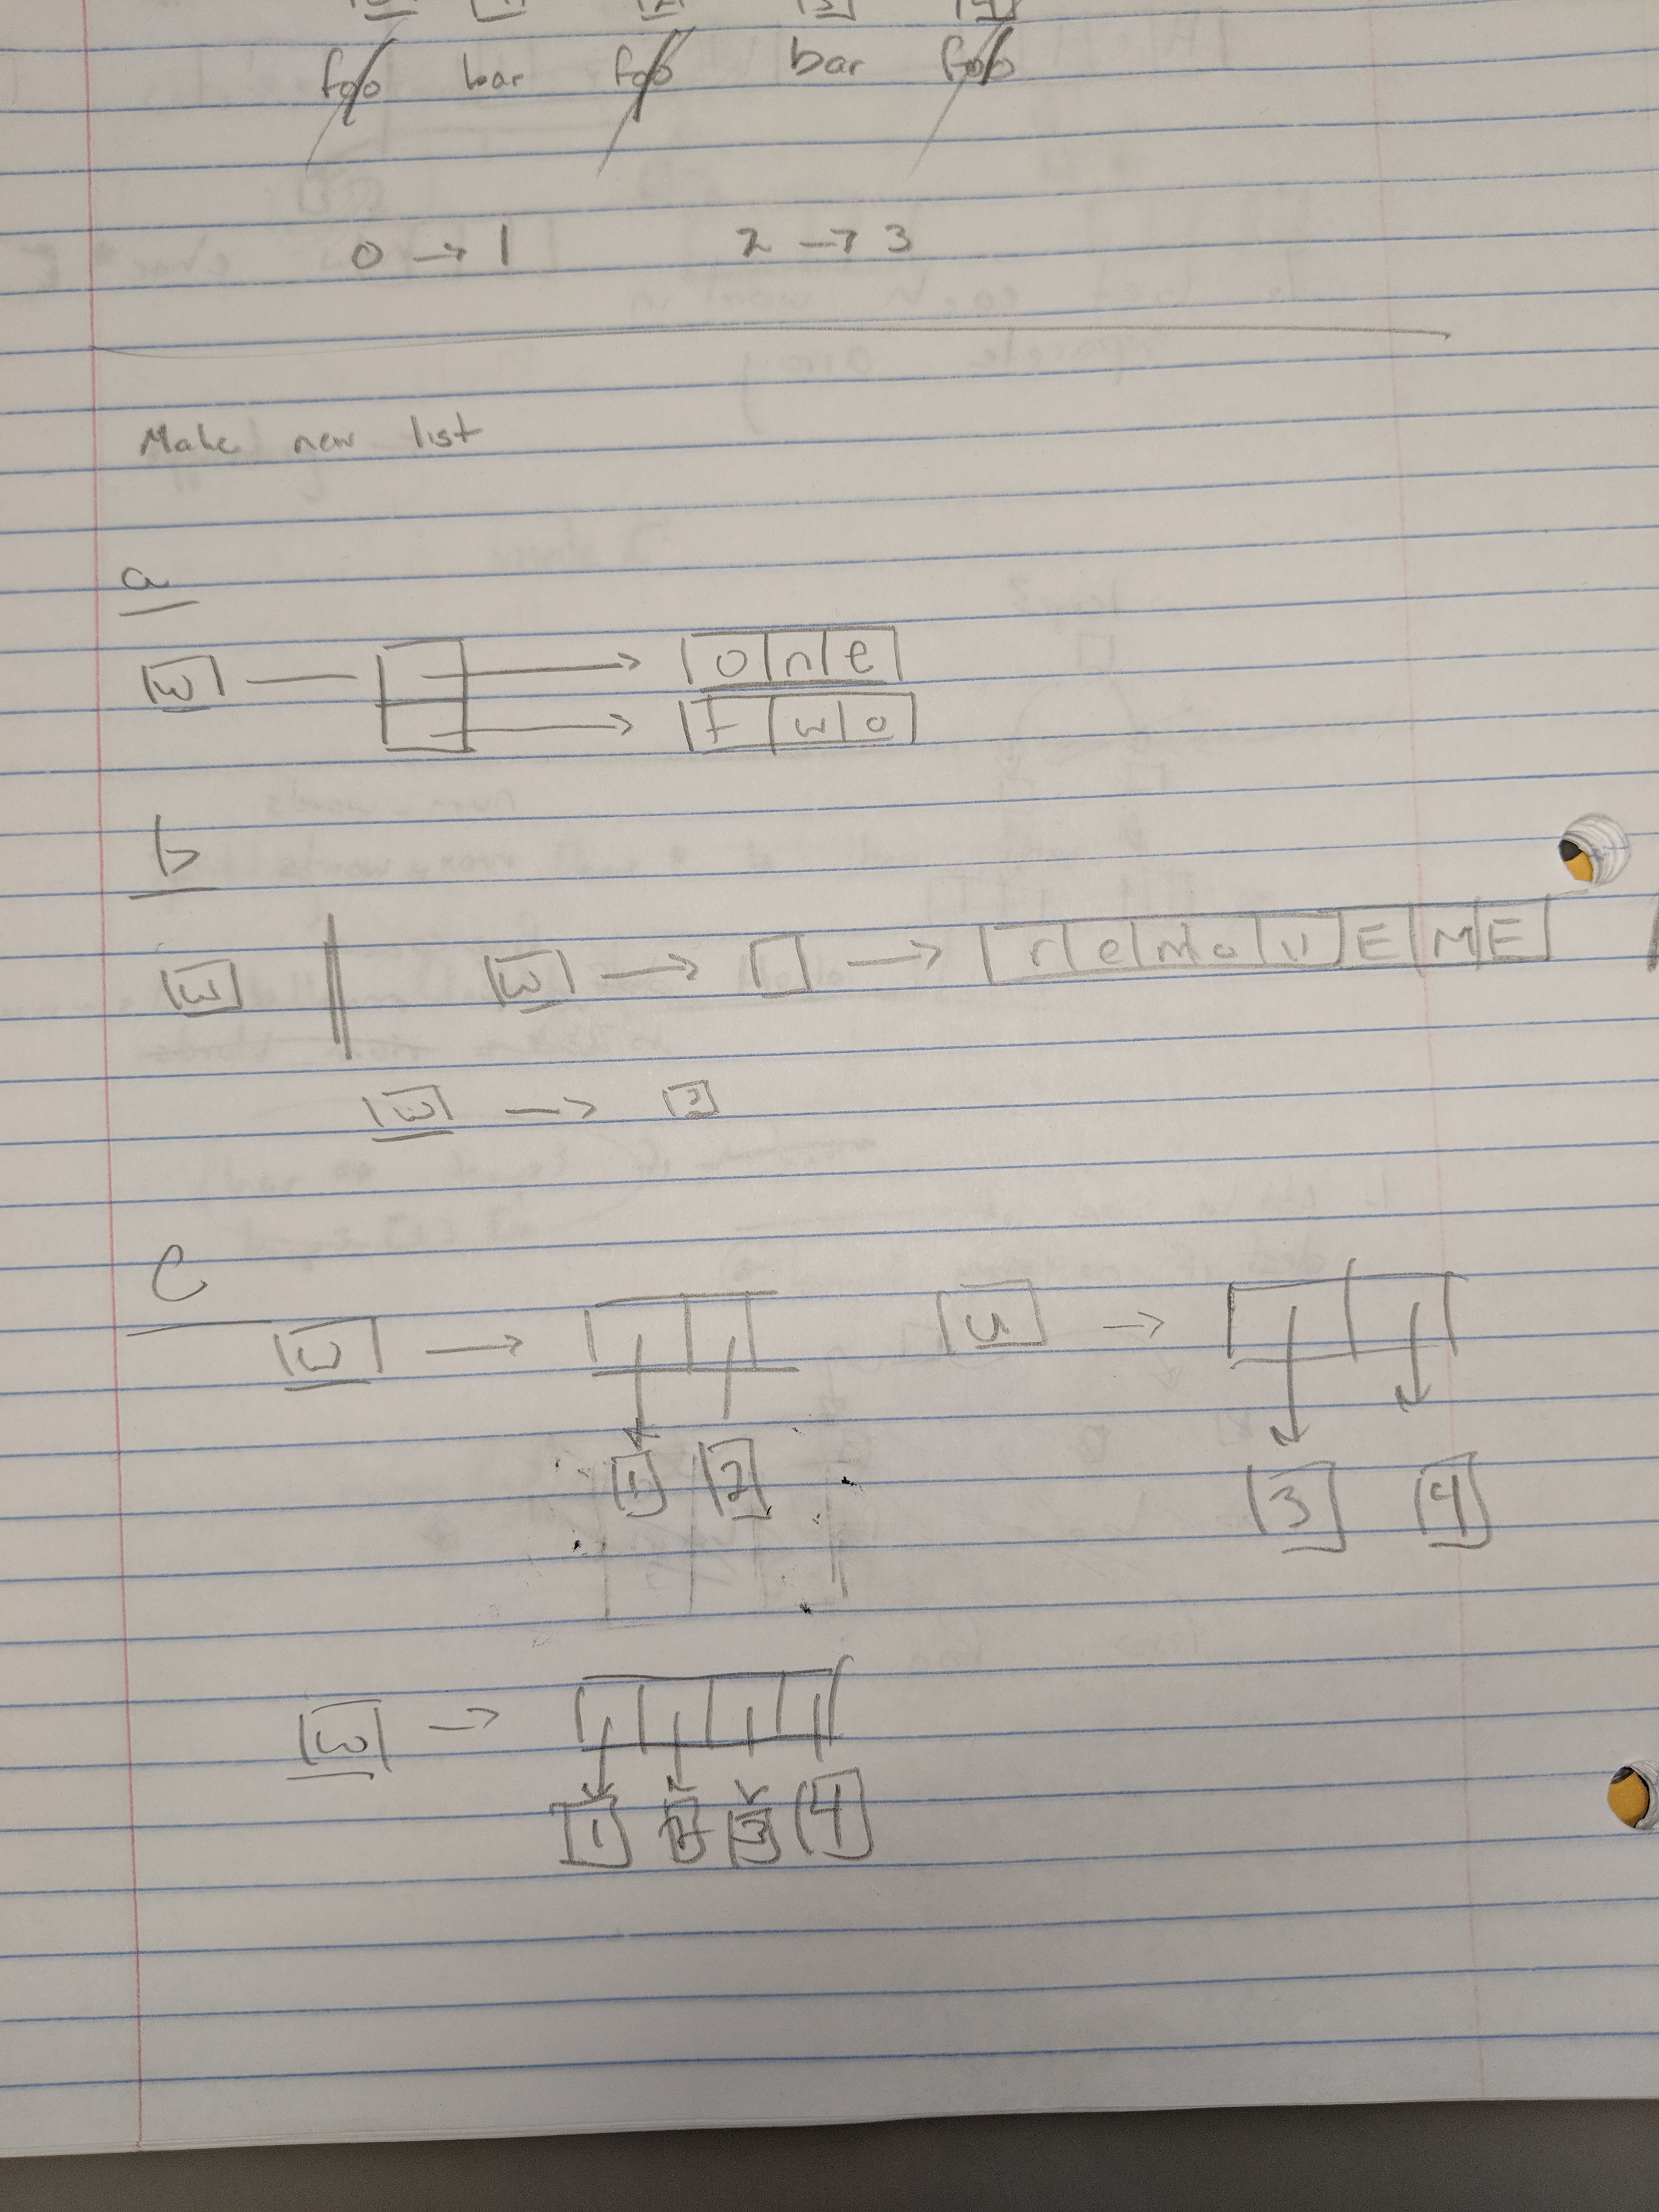 foo bar foo bar foo
0 → 1 2 → 3
Make new list
a
w → o n e
t w o
b
w w → → r e m o v E M E
w →
C
w → u →
1 2 3 4
w →
1 2 3 4